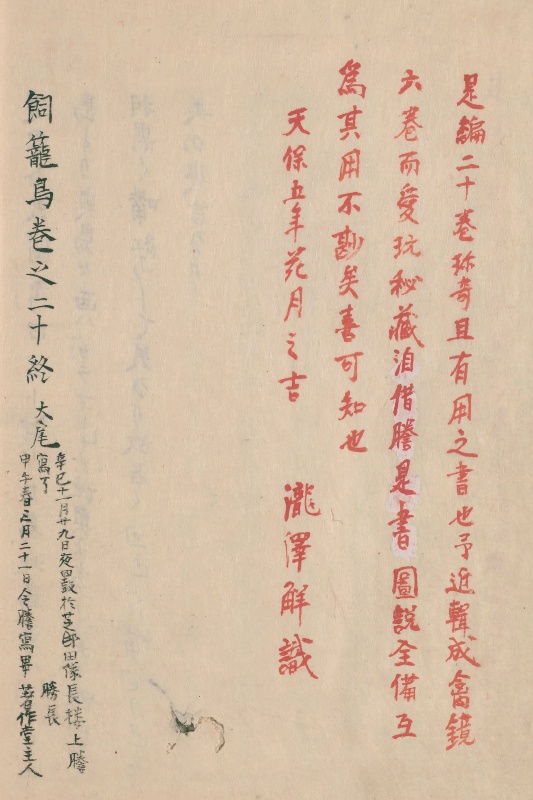 是編二十巻珎奇且有用之書也予近輯成禽鏡
六巻而愛玩秘藏洎借謄是書圖説全備互
為其用不尠矣喜可知也
天保五年花月之吉
瀧澤解識
飼籠鳥巻之二十終 大尾
辛巳十一月廿九日夜四鼓於芝邸田隊長楼上謄
寫了 勝長
甲午春三月二十一日令謄寫畢 著作堂主人